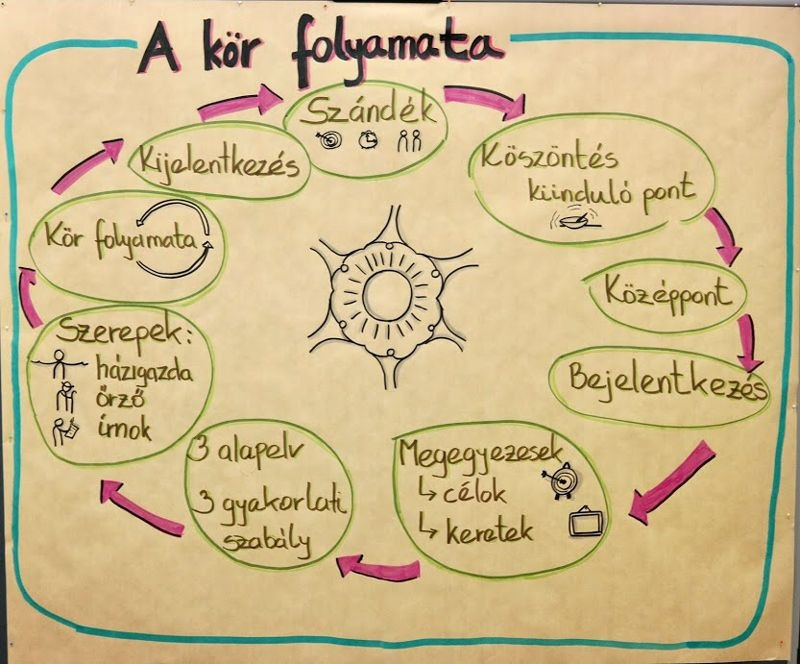 A kör folyamata
Szándék
Köszöntés
kiinduló pont
Középpont
Bejelentkezés
Megegyezések
↳ célok
↳ keretek
3 alapelv
3 gyakorlati
szabály
Szerepek:
házigazda
őrző
írnok
Kör folyamata
Kijelentkezés